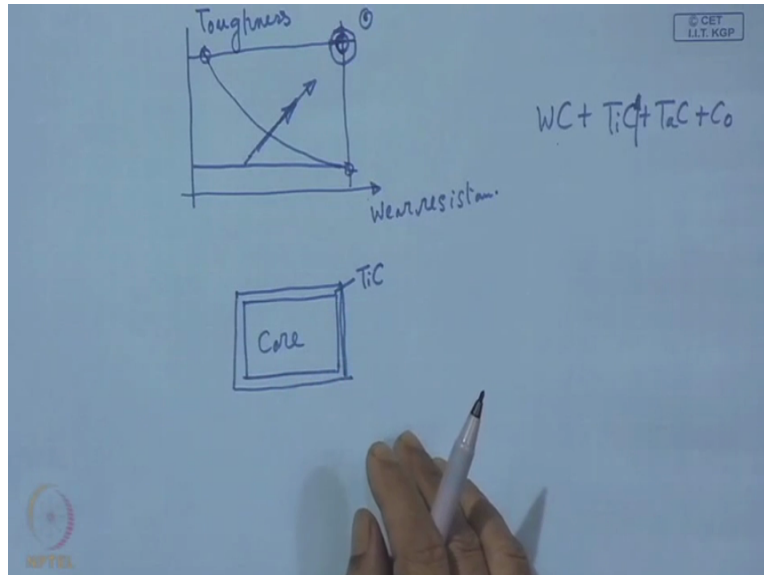 Toughness
© CET
I.I.T. KGP
WC + TiC + TaC + Co
Wear resistan.
TiC
Core
NPTEL